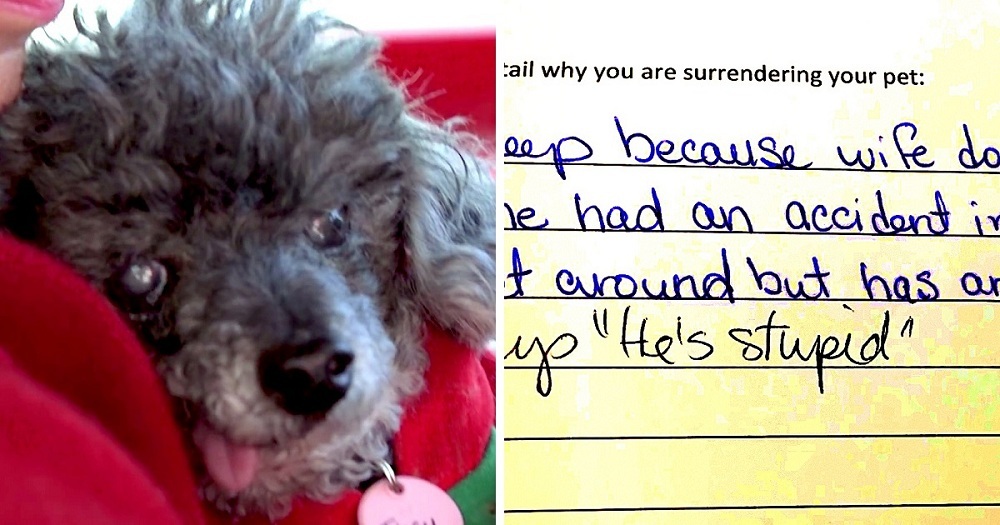 tail why you are surrendering your pet:
eep because wife do
he had an accident in
t around but has ar
yp "He's stupid"